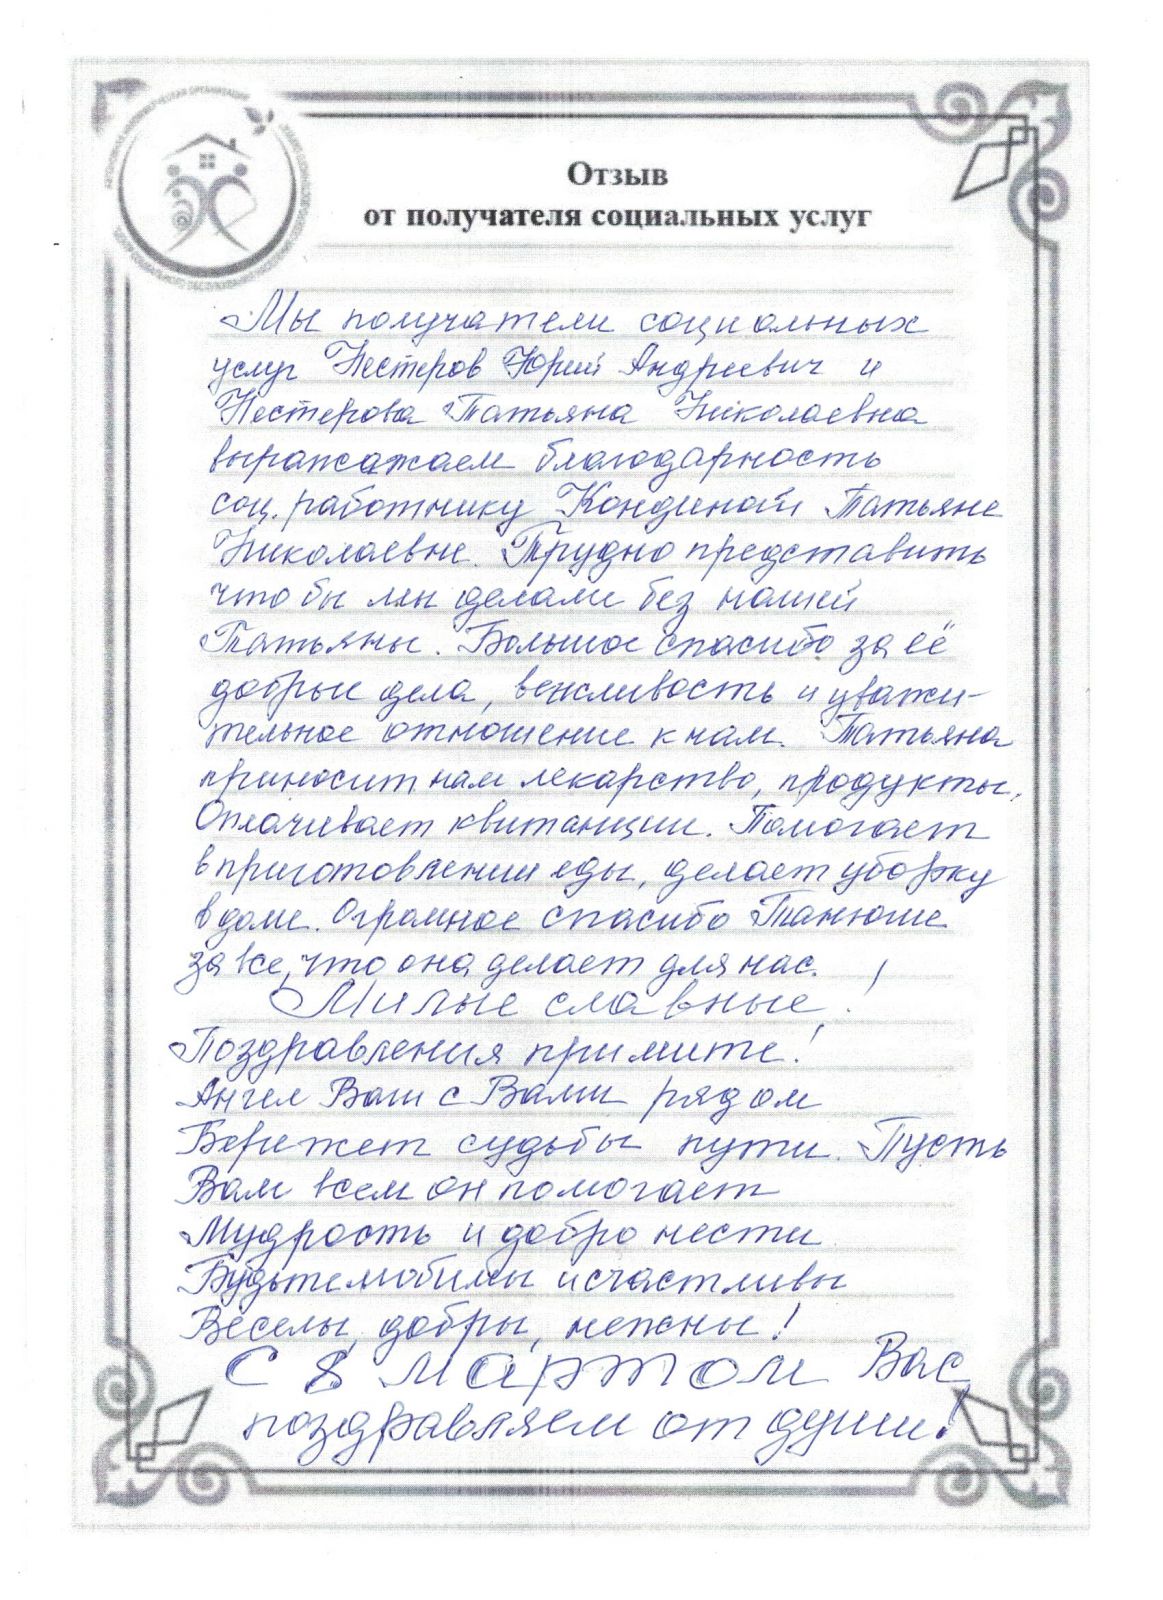 Отзыв
от получателя социальных услуг
Мы получатели социальных
услуг Нестеров Юрий Андреевич и
Нестерова Татьяна Николаевна
выражажаем благодарность
соц. работнику Кондиной Татьяне
Николаевне. Трудно представить
что бы мы делали без нашей
Татьяны. Большое спасибо за её
добрые дела, вежливость и уважи-
тельное отношение к нам. Татьяна
приносит нам лекарство, продукты.
Оплачивает квитанции. Помогает
в приготовлении еды, делает уборку
в доме. Огромное спасибо Танюше
за все, что она делает для нас.
Милые славные!
Поздравления примите!
Ангел Ваш с Вами рядом
Бережет судьбы пути. Пусть
Вам всем он помогает
Мудрость и добро нести
Будьте любимы и счастливы
Веселы, добры, нежны!
С 8 мартом Вас
поздравляем от души!